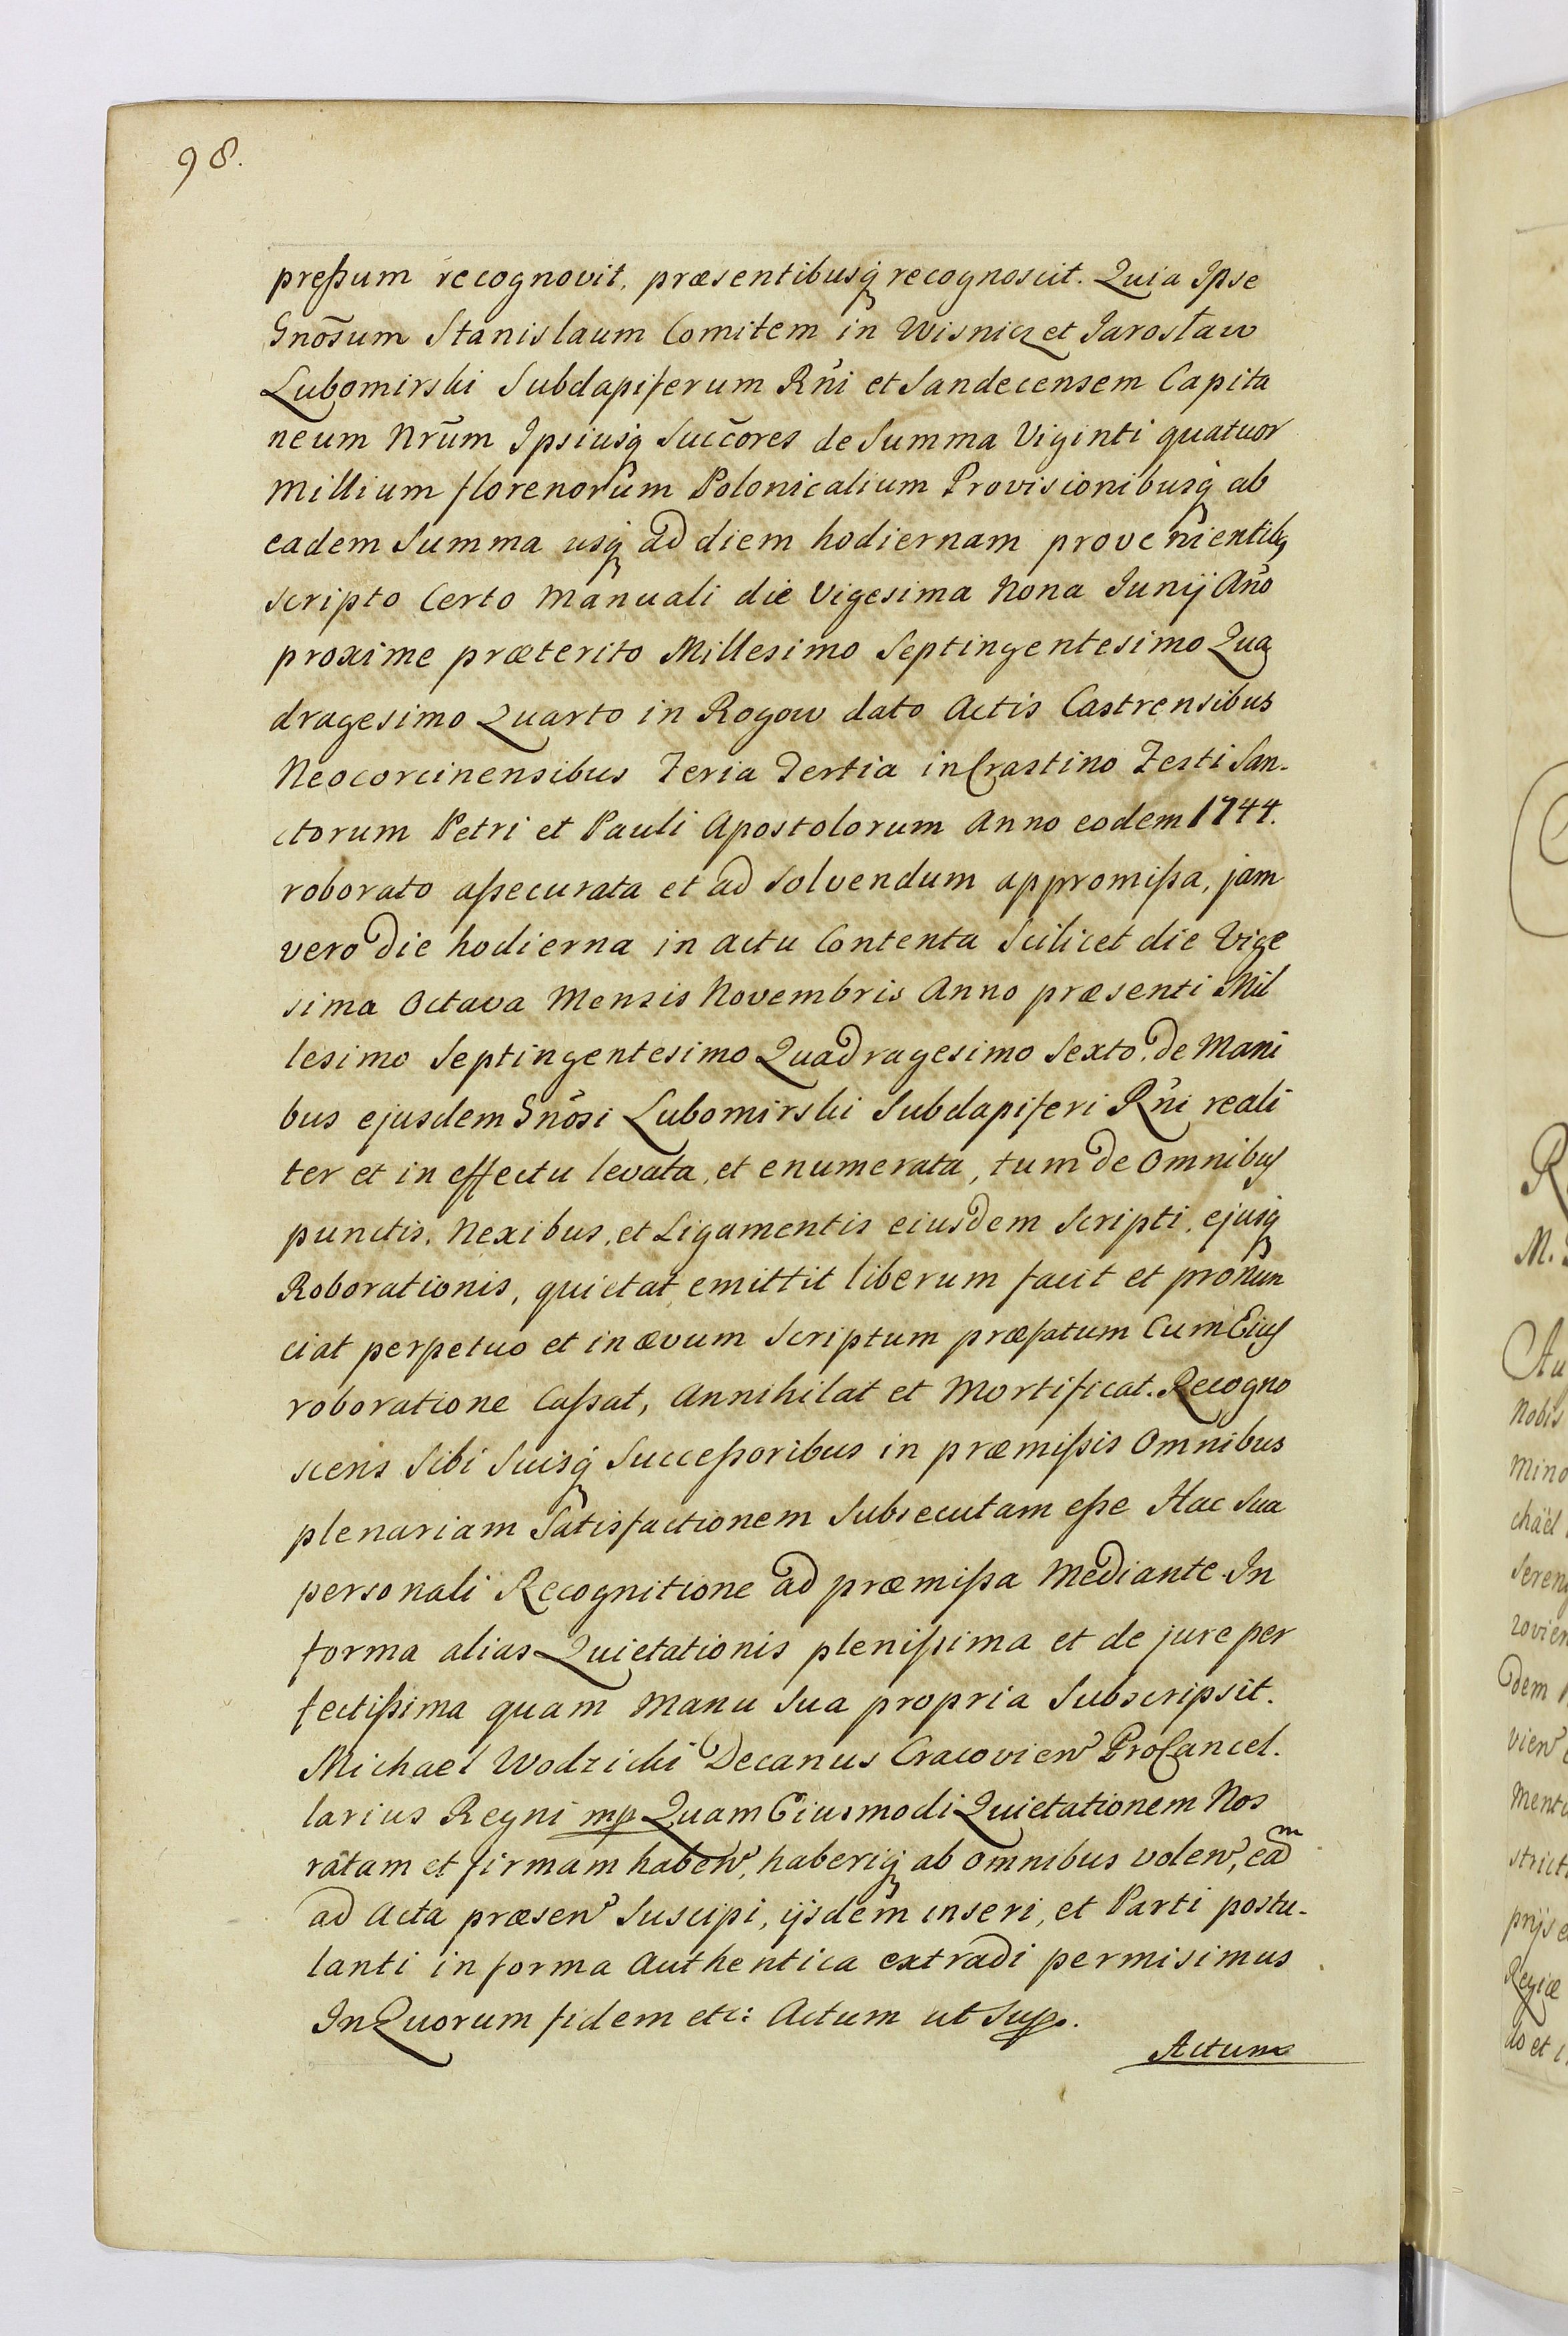 98.
preßum recognovit, præsentibusq́ recognoscit. Quia Ipse
Gnõsum Stanislaum Comitem in Wisnicz et Jarosław
Lubomirski Subdapiferum Rñi et Sandecensem Capita
neum Nrũm Ipsiusq́ Succ̃ores de Summa Viginti quatuor
Millium florenorum Polonicalium Provisionibusq́ ab
eadem Summa usq́ ad diem hodiernam provenientibq
scripto Certo Manuali die Vigesima Nona Junij Añо
proxime præterito Millesimo Septingentesimo Qua
dragesimo Quarto in Rogow dato Actis Castrensibus
Neocorcinensibus Feria Tertia in Crastino Festi San-
ctorum Petri et Pauli Apostolorum Anno eodem 1744.
roborato aßecurata et ad Solvendum appromißa, jam
vero die hodierna in actu Contenta Scilicet die Vige
sima Octava Mensis Novembris Anno præsenti Mil
lesimo Septingentesimo Quadragesimo Sexto, de Mani
bus ejusdem Gnõsi Lubomirski Subdapiferi Rñi reali
ter et in effectu levata, et enumerata, tum de Omnibus
punctis, Nexibus, et Ligamentis eiusdem Scripti, ejusq́
Roborationis, quietat emittit liberum facit et pronun
ciat perpetuo et in ævum Scriptum præfatum Cum Eius
roboratione Caßat, Annihilat et Mortificat. Recogno
scens Sibi Suisq́ Succeßoribus in præmißis Omnibus
plenariam Satisfactionem Subsecutam eße Hac Sua
personali Recognitione ad præmißa Mediante. In
forma alias Quietationis plenißima et de jure per
fectißima quam Manu Sua propria Subscripsit.
Michael Wodzicki Decanus Cracovien̄ ProCancel.
larius Regni mp Quam Eiusmodi Quietationem Nos
ratam et firmam haben̄, haberiq́ ab omnibus volen̄, eadᵐ
ad Acta præsen̄ Suscipi, ijsdem inseri, et Parti postu-
lanti in forma Authentica extradi permisimus
In Quorum fidem etc: Actum ut Sup.
Actum